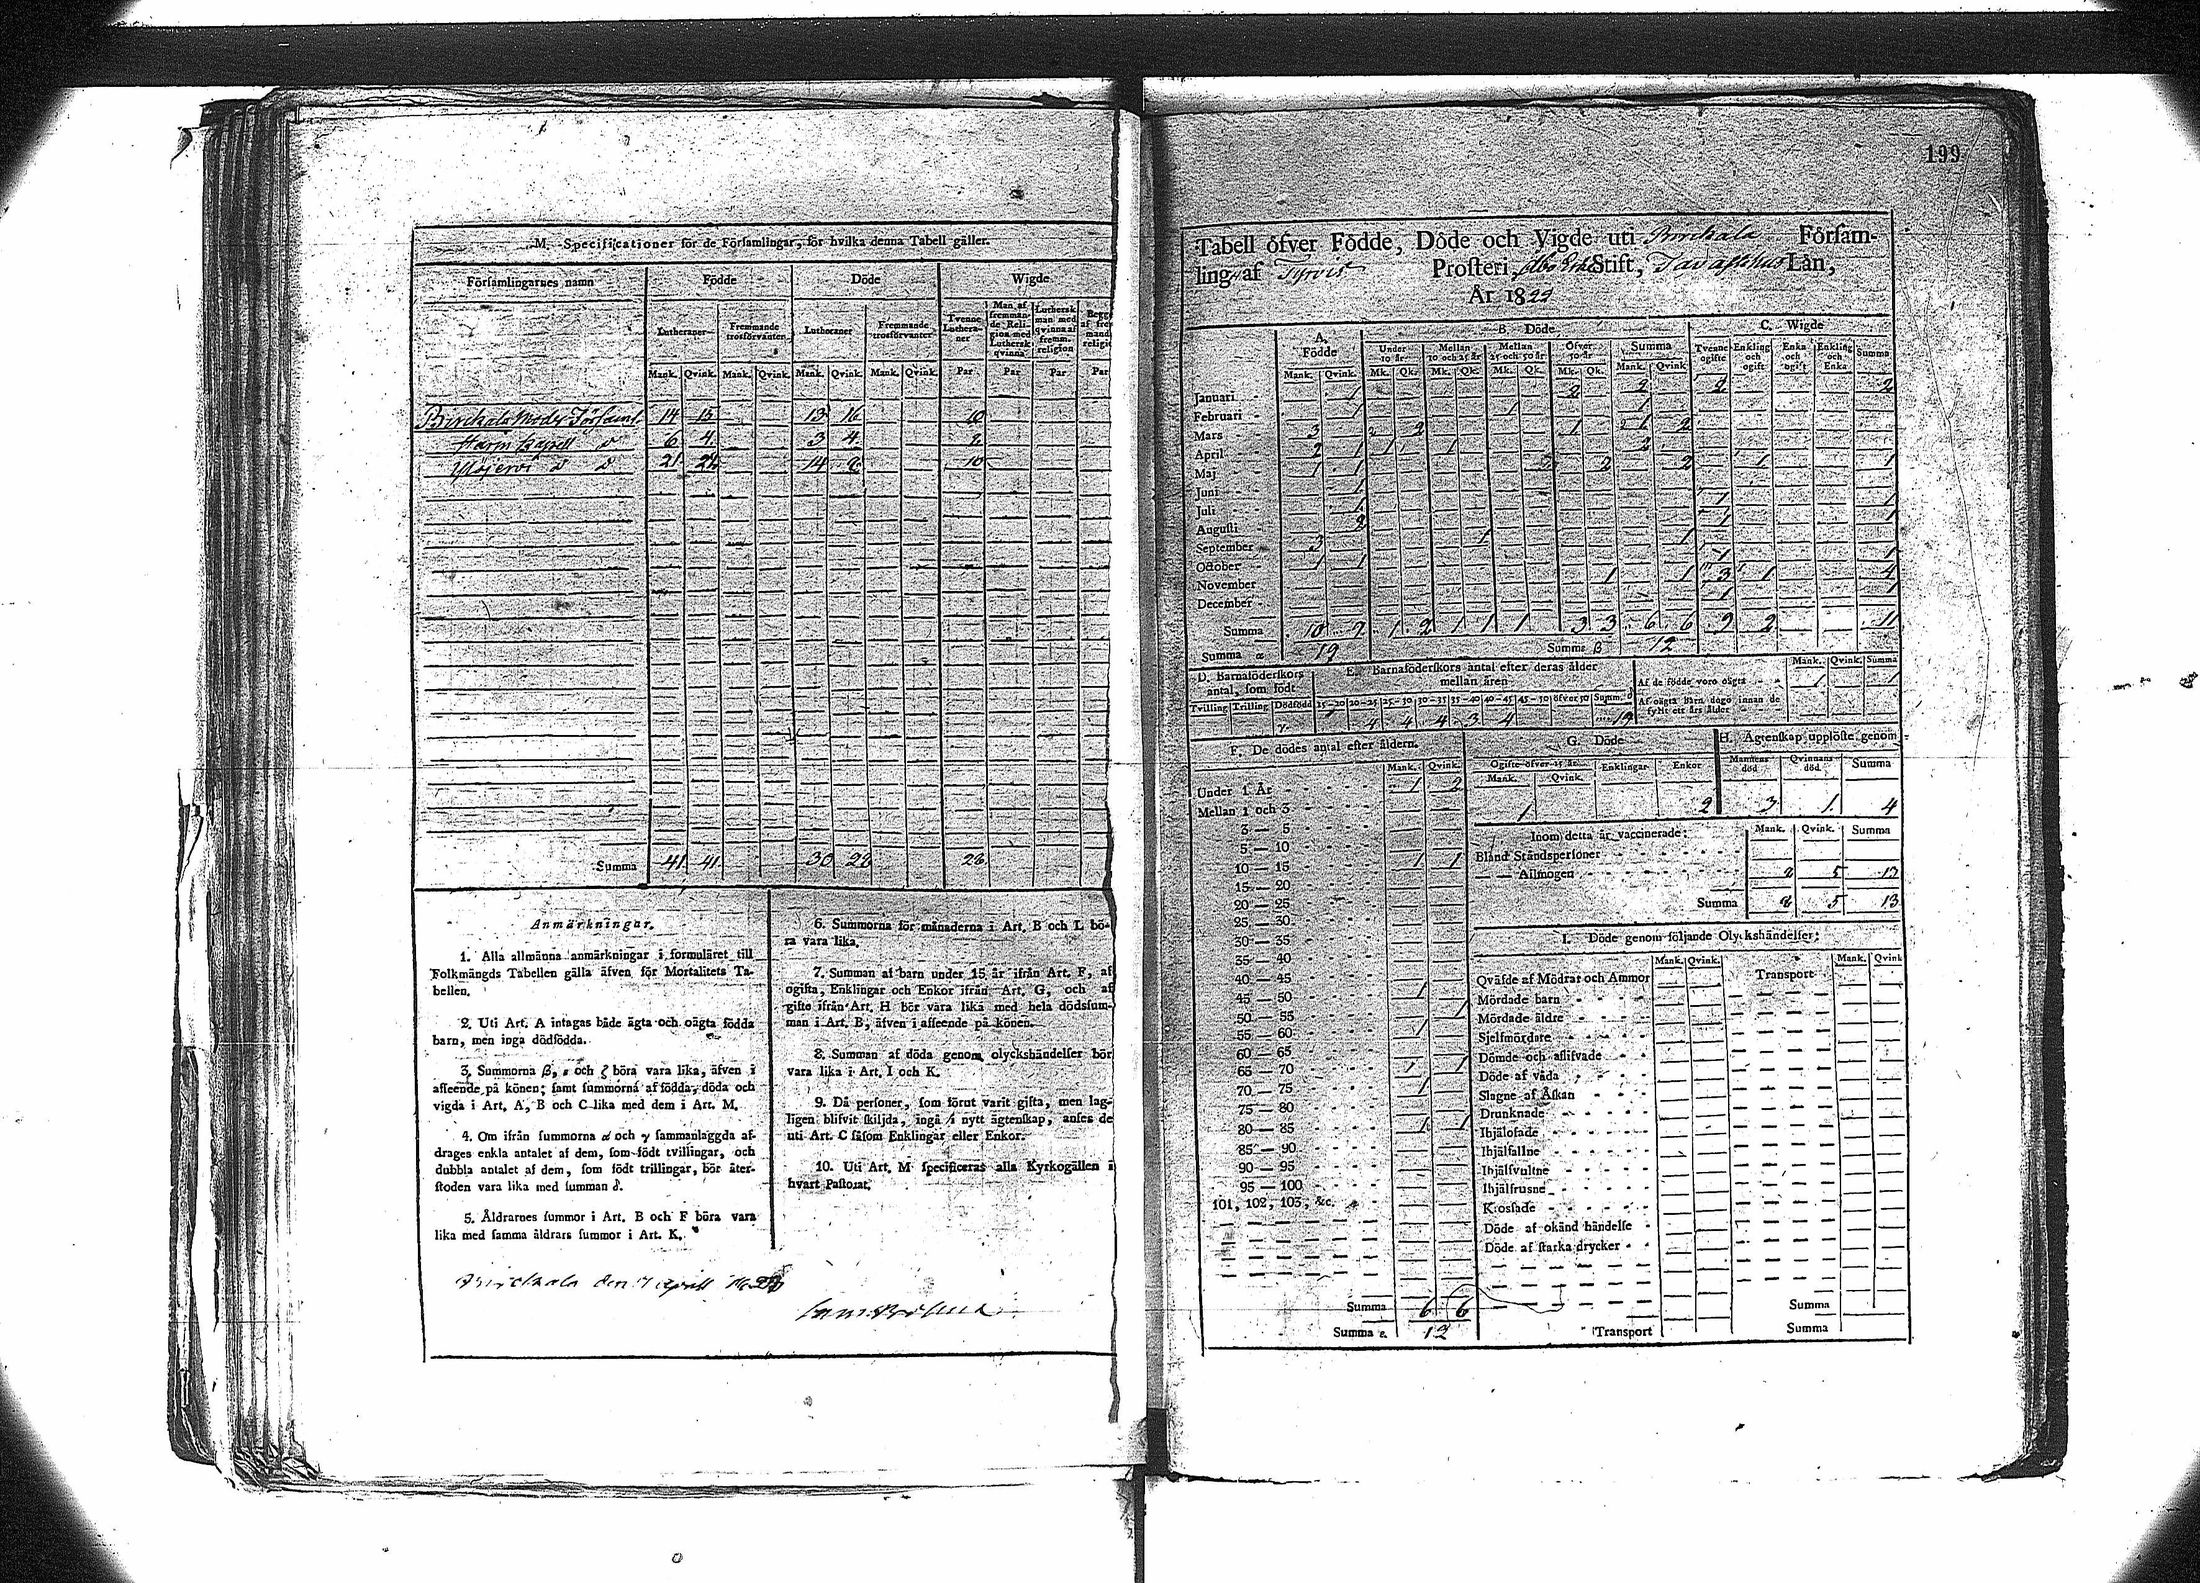 M. Specificationer för de Församlingar, för hvilka denna Tabell gäller.
Församlingarnes namn Födde Döde Wigde
Lutheraner Fremmande trosförvanter Lutheraner Fremmande trosförvanter Tvenne Lutheraner Man af fremmande Religion med Luthersk qvinna Luthersk man med qvinna af fremm. religion
Mank. Qvink. Mank. Qvink. Mank. Qvink. Mank. Qvink. Par Par Par Par
Birckala Moder Församl. 14 15 13 16 10
Harju Kapell 6 4 3 4 2
Ylöjervi 21 22 14 8 10
Summa 41 41 30 28
Anmärkningar.
1. Alla allmänna anmärkningar i formuläret till
Folkmängds Tabellen gälla äfven för Mortalitets Ta-
bellen.
2. Uti Art. A intagas både ägta och oägta födda
barn, men inga dödfödda.
3. Summorna β, ε och ζ böra vara lika, äfven i
afseende på könen; samt summorna af födda, döda och
vigda i Art. A, B och C lika med dem i Art. M.
4. Om ifrån summorna α och γ sammanlaggda af-
drages enkla antalet af dem, som födt tvillingar, och
dubbla antalet af dem, som födt trillingar, bör åter-
stoden vara lika med summan δ.
5. Åldrarnes summor i Art. B och F böra vara
lika med samma åldrars summor i Art. K.
6. Summorna för månaderna i Art. B och L bö-
ra vara lika.
7. Summan af barn under 15 år ifrån Art. F, af
ogifta, Enklingar och Enkor ifrån Art. G, och af
gifte ifrån Art. H bör vara lika med hela dödssum-
man i Art. B, äfven i afseende på könen.
8. Summan af döda genom olyckshändelser bör
vara lika i Art. I och K.
9. Då personer, som förut varit gifta, men lag-
ligen blifvit skiljda, ingå i nytt ägtenskap, anses de
uti Art. C såsom Enklingar eller Enkor.
10. Uti Art. M specificeras alla Kyrkogällen i
hvart Pastorat.
Birckala den april
199
Tabell öfver Födde, Döde och Vigde uti Birckala Försam-
ling af Tyrvis Prosteri, Åbo Erke Stift, Tavastehus Län,
År 18
A. Födde B. Döde C. Wigde
Under 10 år. Mellan 10 och 25 år Mellan 25 och 50 år Öfver 50 år Summa Tvenne ogifte Enkling och ogift Enka och ogift Enkling och Enka Summa
Mank. Qvink. Mk. Qk. Mk. Qk. Mk. Qk. Mk. Qk. Mank. Qvink.
Januari 1 2 2 2 2
Februari 1 1 1
Mars 3 2 1 1 2
April 2 1 1 1 2
Maj 1 1 2 2 1 1
Juni 1
Juli 1 1 1
Augusti 2 1 1
September 3 1 1
October 1 1 1 1
November 1 1 3 1 4
December 1 1
Summa 10 9 1 2 1 1 1 3 3 6 6 9 2 11
Summa α 19 Summa β 12
D. Barnaföderskors antal, som födt
Tvilling Trilling Dödfödd
E. Barnaföderskors antal efter deras ålder mellan åren
15—20 20—25 25—30 30—35 35—40 40—45 45—50 öfver 50 Summ. δ
4 4 4 3 4 19
Mank. Qvink. Summa
Af de födde voro oägta 1 1
Af oägta barn dogo innan de fyllt ett års ålder
F. De dödes antal efter åldern.
Mank. Qvink.
Under 1 År 1 2
Mellan 1 och 3
3 — 5
5 — 10
10 — 15 1 1
15 — 20
20 — 25
25 — 30
30 — 35
35 — 40
40 — 45
45 — 50 1
50 — 55 1
55 — 60 1
60 — 65
65 — 70 1 1
70 — 75 1
75 — 80
80 — 85 1 1
85 — 90
90 — 95
95 — 100
101, 102, 103, &c.
Summa 6 6
Summa ε. 12
G. Döde
Ogifte öfver 15 år Enklingar Enkor
Mank. Qvink.
1 2
H. Ägtenskap upplöste genom
Mannens död Qvinnans död Summa
3 1 4
Inom detta år vaccinerade: Mank. Qvink. Summa
Bland Ståndspersoner
— — Allmogen 8 5 13
Summa 8 5 13
I. Döde genom följande Olyckshändelser:
Mank. Qvink. Mank. Qvink
Qväfde af Mödrar och Ammor Transport
Mördade barn
Mördade äldre
Sjelfmördare
Dömde och aflifvade
Döde af våda
Slagne af Åskan
Drunknade
Ihjälosade
Ihjälfallne
Ihjälsvultne
Ihjälfrusne
Krossade
Döde af okänd händelse
Döde af starka drycker
Summa
Transport Summa